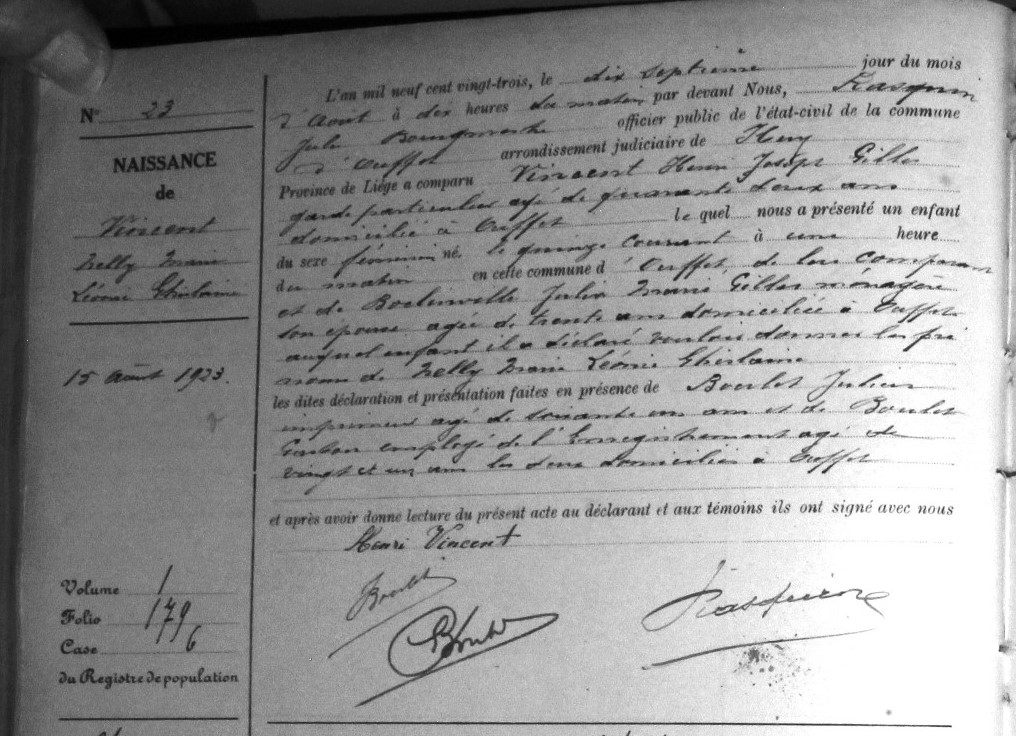 N° 23
NAISSANCE
de
Vincent
Nelly Marie
Léonie Ghislaine
15 août 1923.
Volume 1
Folio 179
Case 6
du Registre de population
L'an mil neuf cent vingt-trois, le dix septième jour du mois
d'Août à dix heures du matin par devant Nous, Rasquin
Jules officier public de l'état-civil de la commune
d'Ouffet arrondissement judiciaire de Huy
Province de Liége a comparu Vincent Henri Joseph Gilles
garde particulier agé de quarante deux ans
domicilié à Ouffet le quel nous a présenté un enfant
du sexe féminin né le quinze courant à une heure
du matin en cette commune d'Ouffet, de lui comparant
et de Boelinville Julia Marie Gilles ménagère
son épouse agée de trente ans domiciliée à Ouffet
auquel enfant il a déclaré vouloir donner les pré
noms de Nelly Marie Léonie Ghislaine
les dites déclaration et présentation faites en présence de Boulet Julien
imprimeur agé de soixante un ans et de Boulet
Gaston employé de l'Enregistrement agé de
vingt et un ans les deux domiciliés à Ouffet
et après avoir donne lecture du présent acte au déclarant et aux témoins ils ont signé avec nous
Henri Vincent
Boulet
GBoulet
J Rasquin